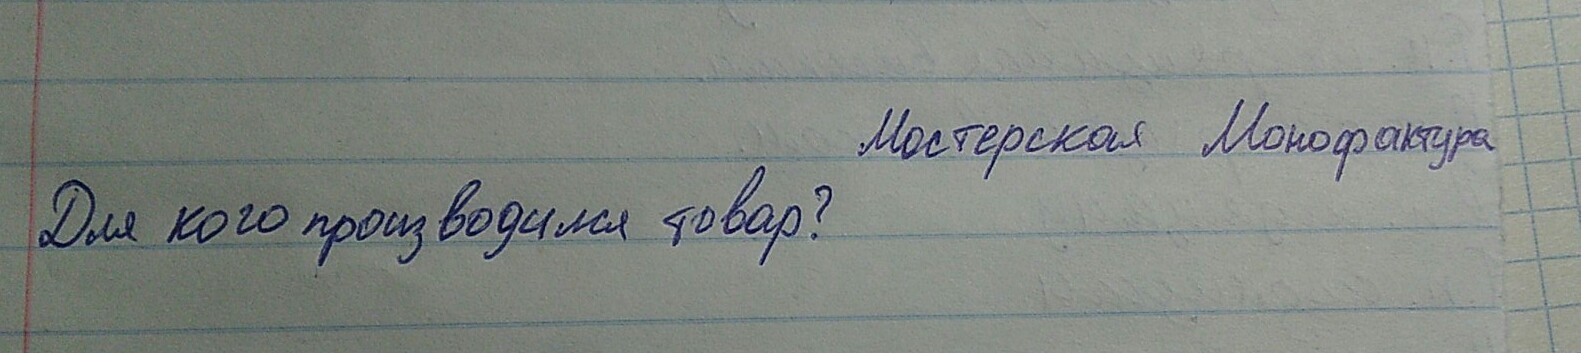 Мостерская Монофактура
Для кого производился товар?